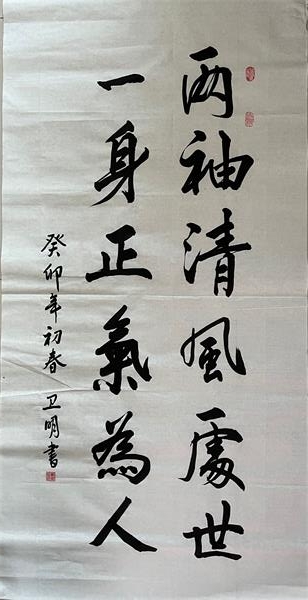 两袖清風處世
一身正氣為人
癸卯年初春 卫明書